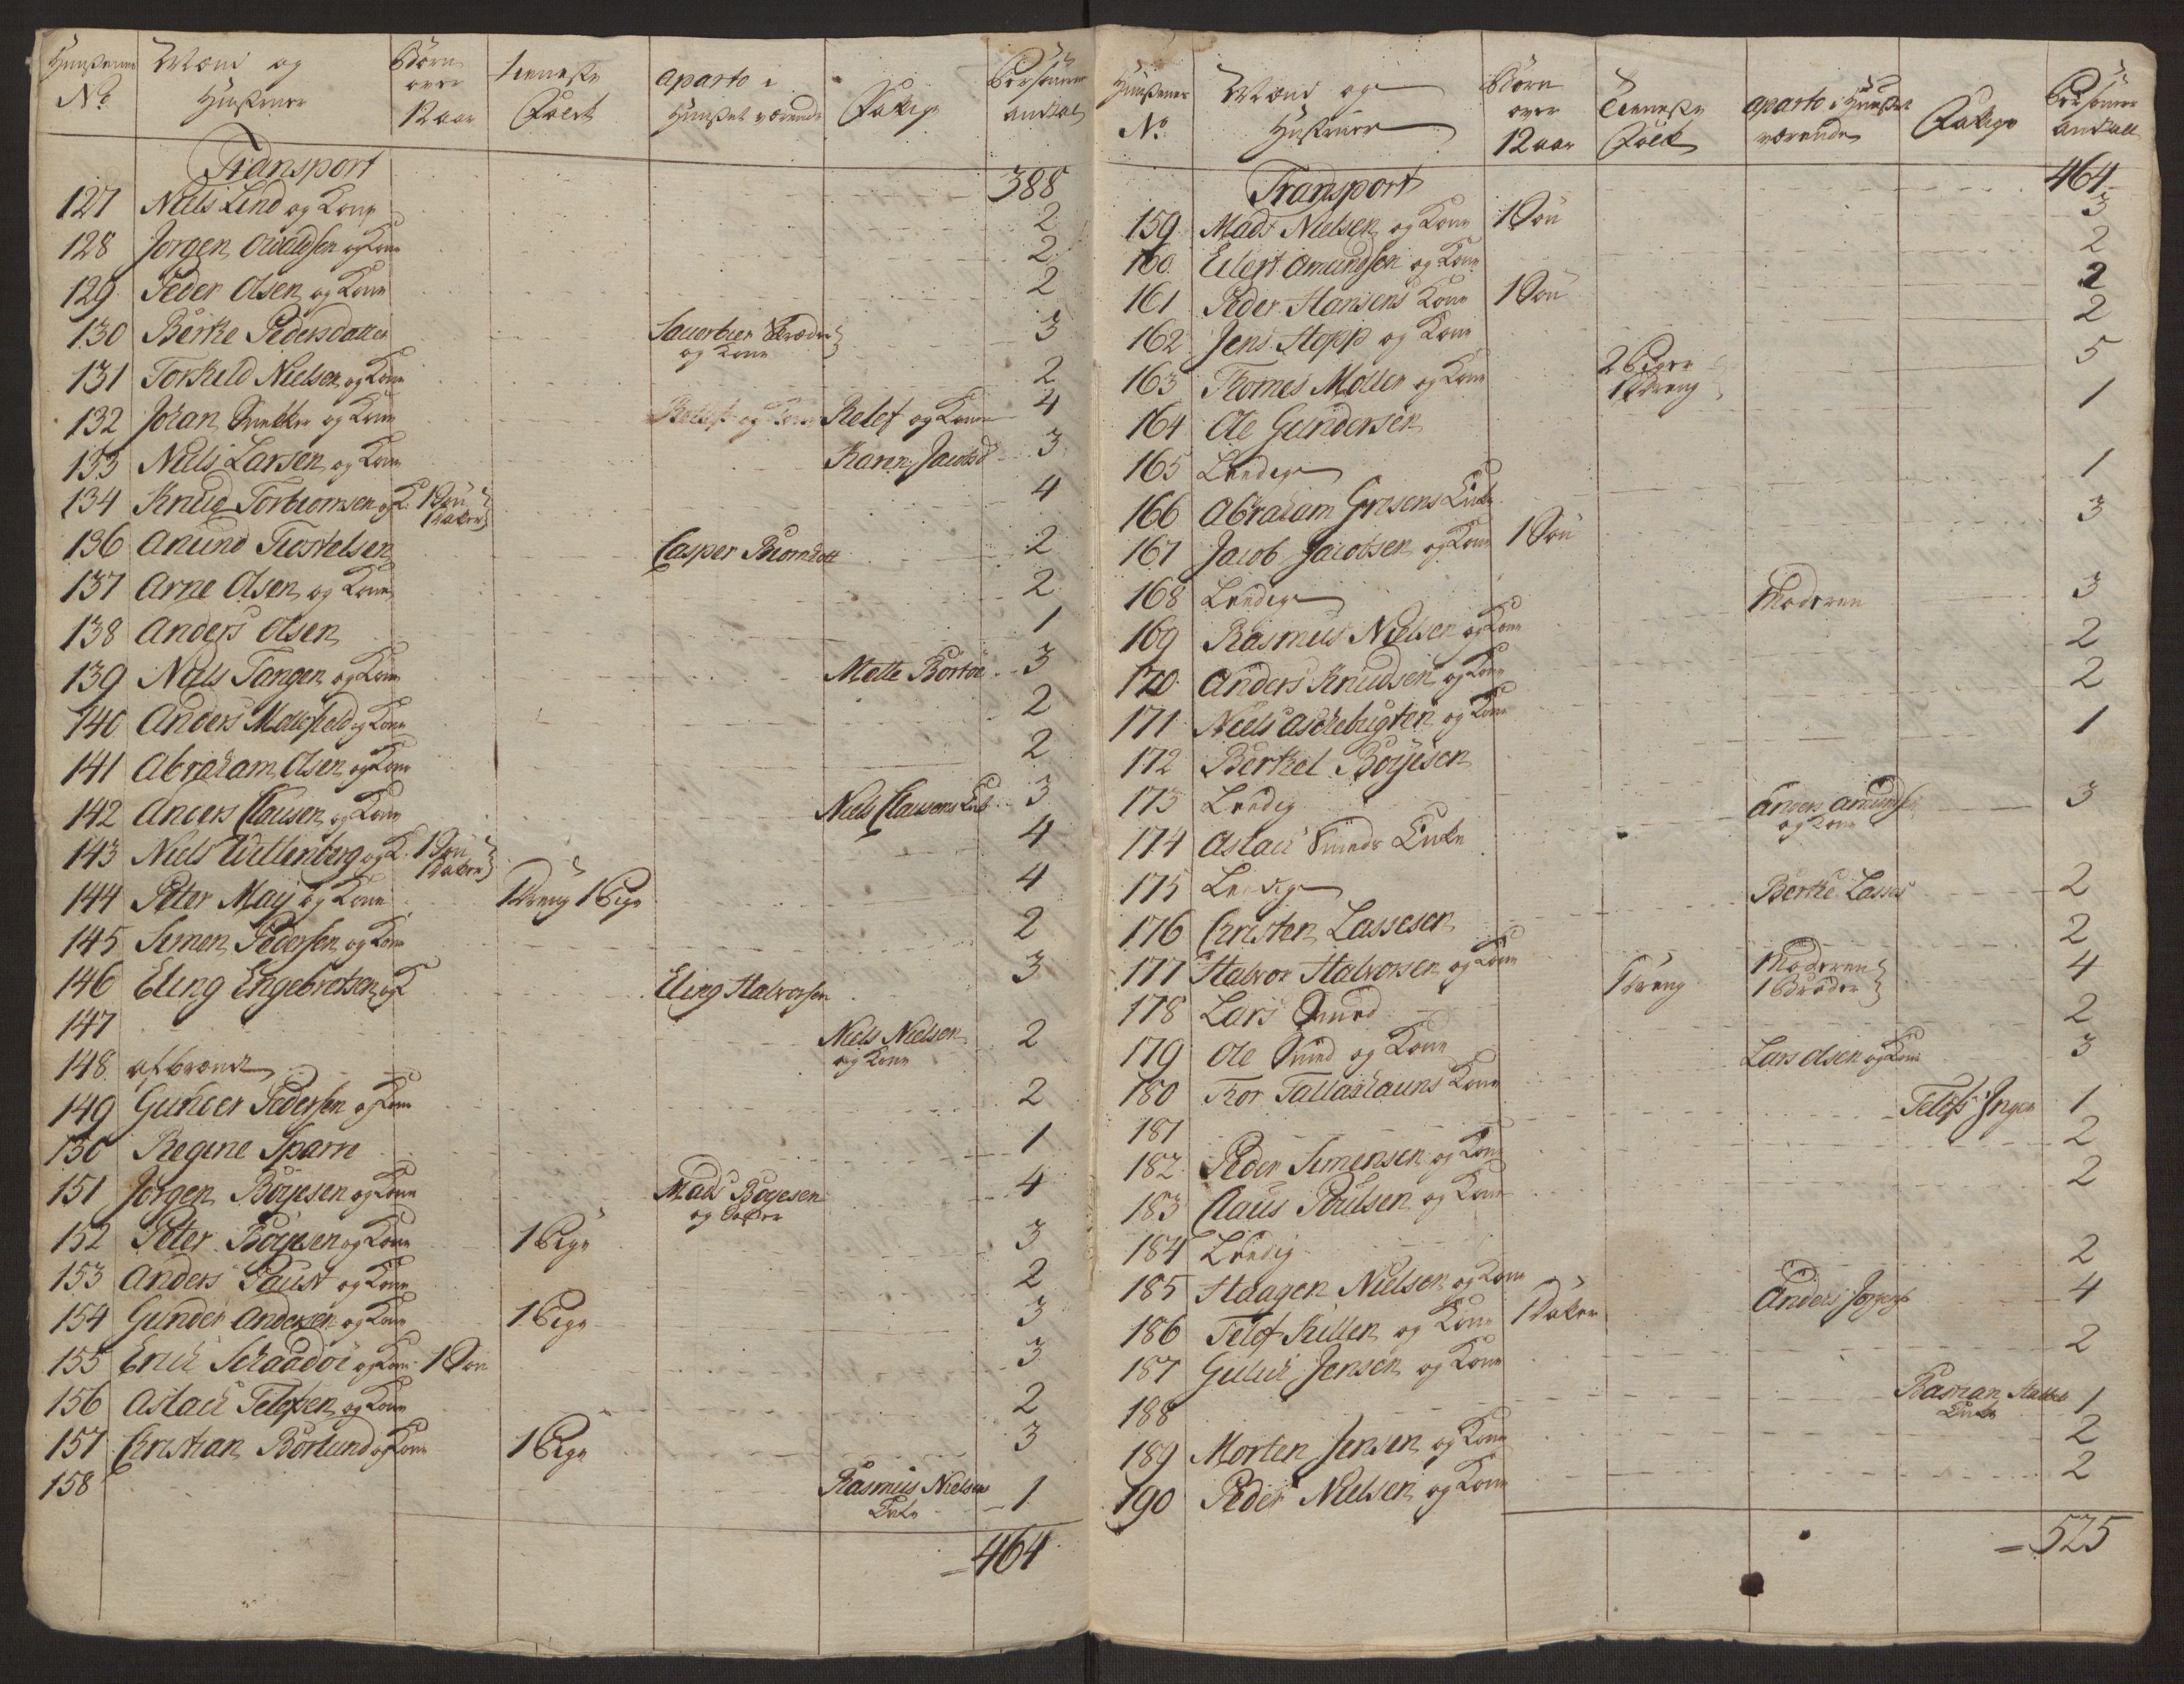 Huusenes No | Mænd og Hustruer | Børn over 12 aar | tieneste Folck | aparte i Huuset værende | Fattige | Persohners andtal
Transport 388
127 Niels Lind og Kone 2
128 Jorgen Olsen og Kone 2
129 Peder Olsen og Kone 2
130 Berthe Pedersdatter Sauerbier Skræder og Kone 3
131 Torkild Nielsen og Kone 2
132 Johan Snekker og Kone Relef og Kone 4
133 Niels Larsen og Kone Karen Jacobsd 3
134 Knud Torbiornsen og K. 1 Søn 1 Datter 4
136 Anund Trostelsen Casper Biornsen 2
137 Arne Olsen og Kone 2
138 Anders Olsen 1
139 Niels Tangen og Kone Mette Borton 3
140 Anders Mollefield og Kone 2
141 Abraham Olsen og Kone 2
142 Anders Clausen og Kone Niels Clausens Enke 3
143 Niels Willenberg og K. 1 Søn 1 Datter 4
144 Peter May og Kone 1 Dreng 1 Pige 4
145 Simen Pedersen og Kone 2
146 Eling Engebretsen og K Eling Halvorsen 3
147 Niels Nielsen og Kone 2
148 afbrændt
149 Gunder Pedersen og Kone 2
150 Regine Sparre 1
151 Jørgen Børjesen og Kone Mads Bøgesen og Datter 4
152 Peter Børjesen og Kone 1 Pige 3
153 Anders Faust og Kone 2
154 Gunder Andersen og Kone 1 Pige 3
155 Erich Schaadøe og Kone 1 Søn 3
156 Aslach Telefsen og Kone 2
157 Christian Børlund og Kone 1 Pige 3
158 Rasmus Nielsens Enke 1
464
Huusenes No | Mænd og Hustruer | Børn over 12 aar | Tieneste Folck | aparte i Huuset værende | Fattige | Persohner andtall
Transport 464
159 Mads Nielsen og Kone 1 Søn 3
160 Eilert Amundsen og Kone 2
161 Peder Hansens Kone 1 Søn 2
162 Jens Stopp og Kone 2
163 Thomes Møller og Kone 2 Piger 1 Dreng 5
164 Ole Gundersen 1
165 Leedig
166 Abraham Grisens Enke 1
167 Jacob Jacobsen og Kone 1 Søn 3
168 Leedig
169 Rasmus Nielsen og Kone Moderen 3
170 Anders Knudsen og Kone 2
171 Niels Aschebugten og Kone 2
172 Berthel Børjesen 1
173 Leedig
174 Aslach Smeds Enke Anders Amundsen og Kone 3
175 Leedig
176 Christen Lassesen Berthe Lasses 2
177 Halvor Halvorsen og Kone 2
178 Lars Smed 1 Dreng Moderen 1 Broder 4
179 Ole Smed og Kone 2
180 Thor Tallashauns Kone Lars Olsen og Kone 3
181 Telefs Inger 1
182 Peder Simensen og Kone 2
183 Claus Poulsen og Kone 2
184 Leedig
185 Haagen Nielsen og Kone 2
186 Telef Killen og Kone 1 Datter Anders 4
187 Guluch Jensen og Kone 2
188 Enke 1
189 Morten Jensen og Kone 2
190 Peder Nielsen og Kone 2
525